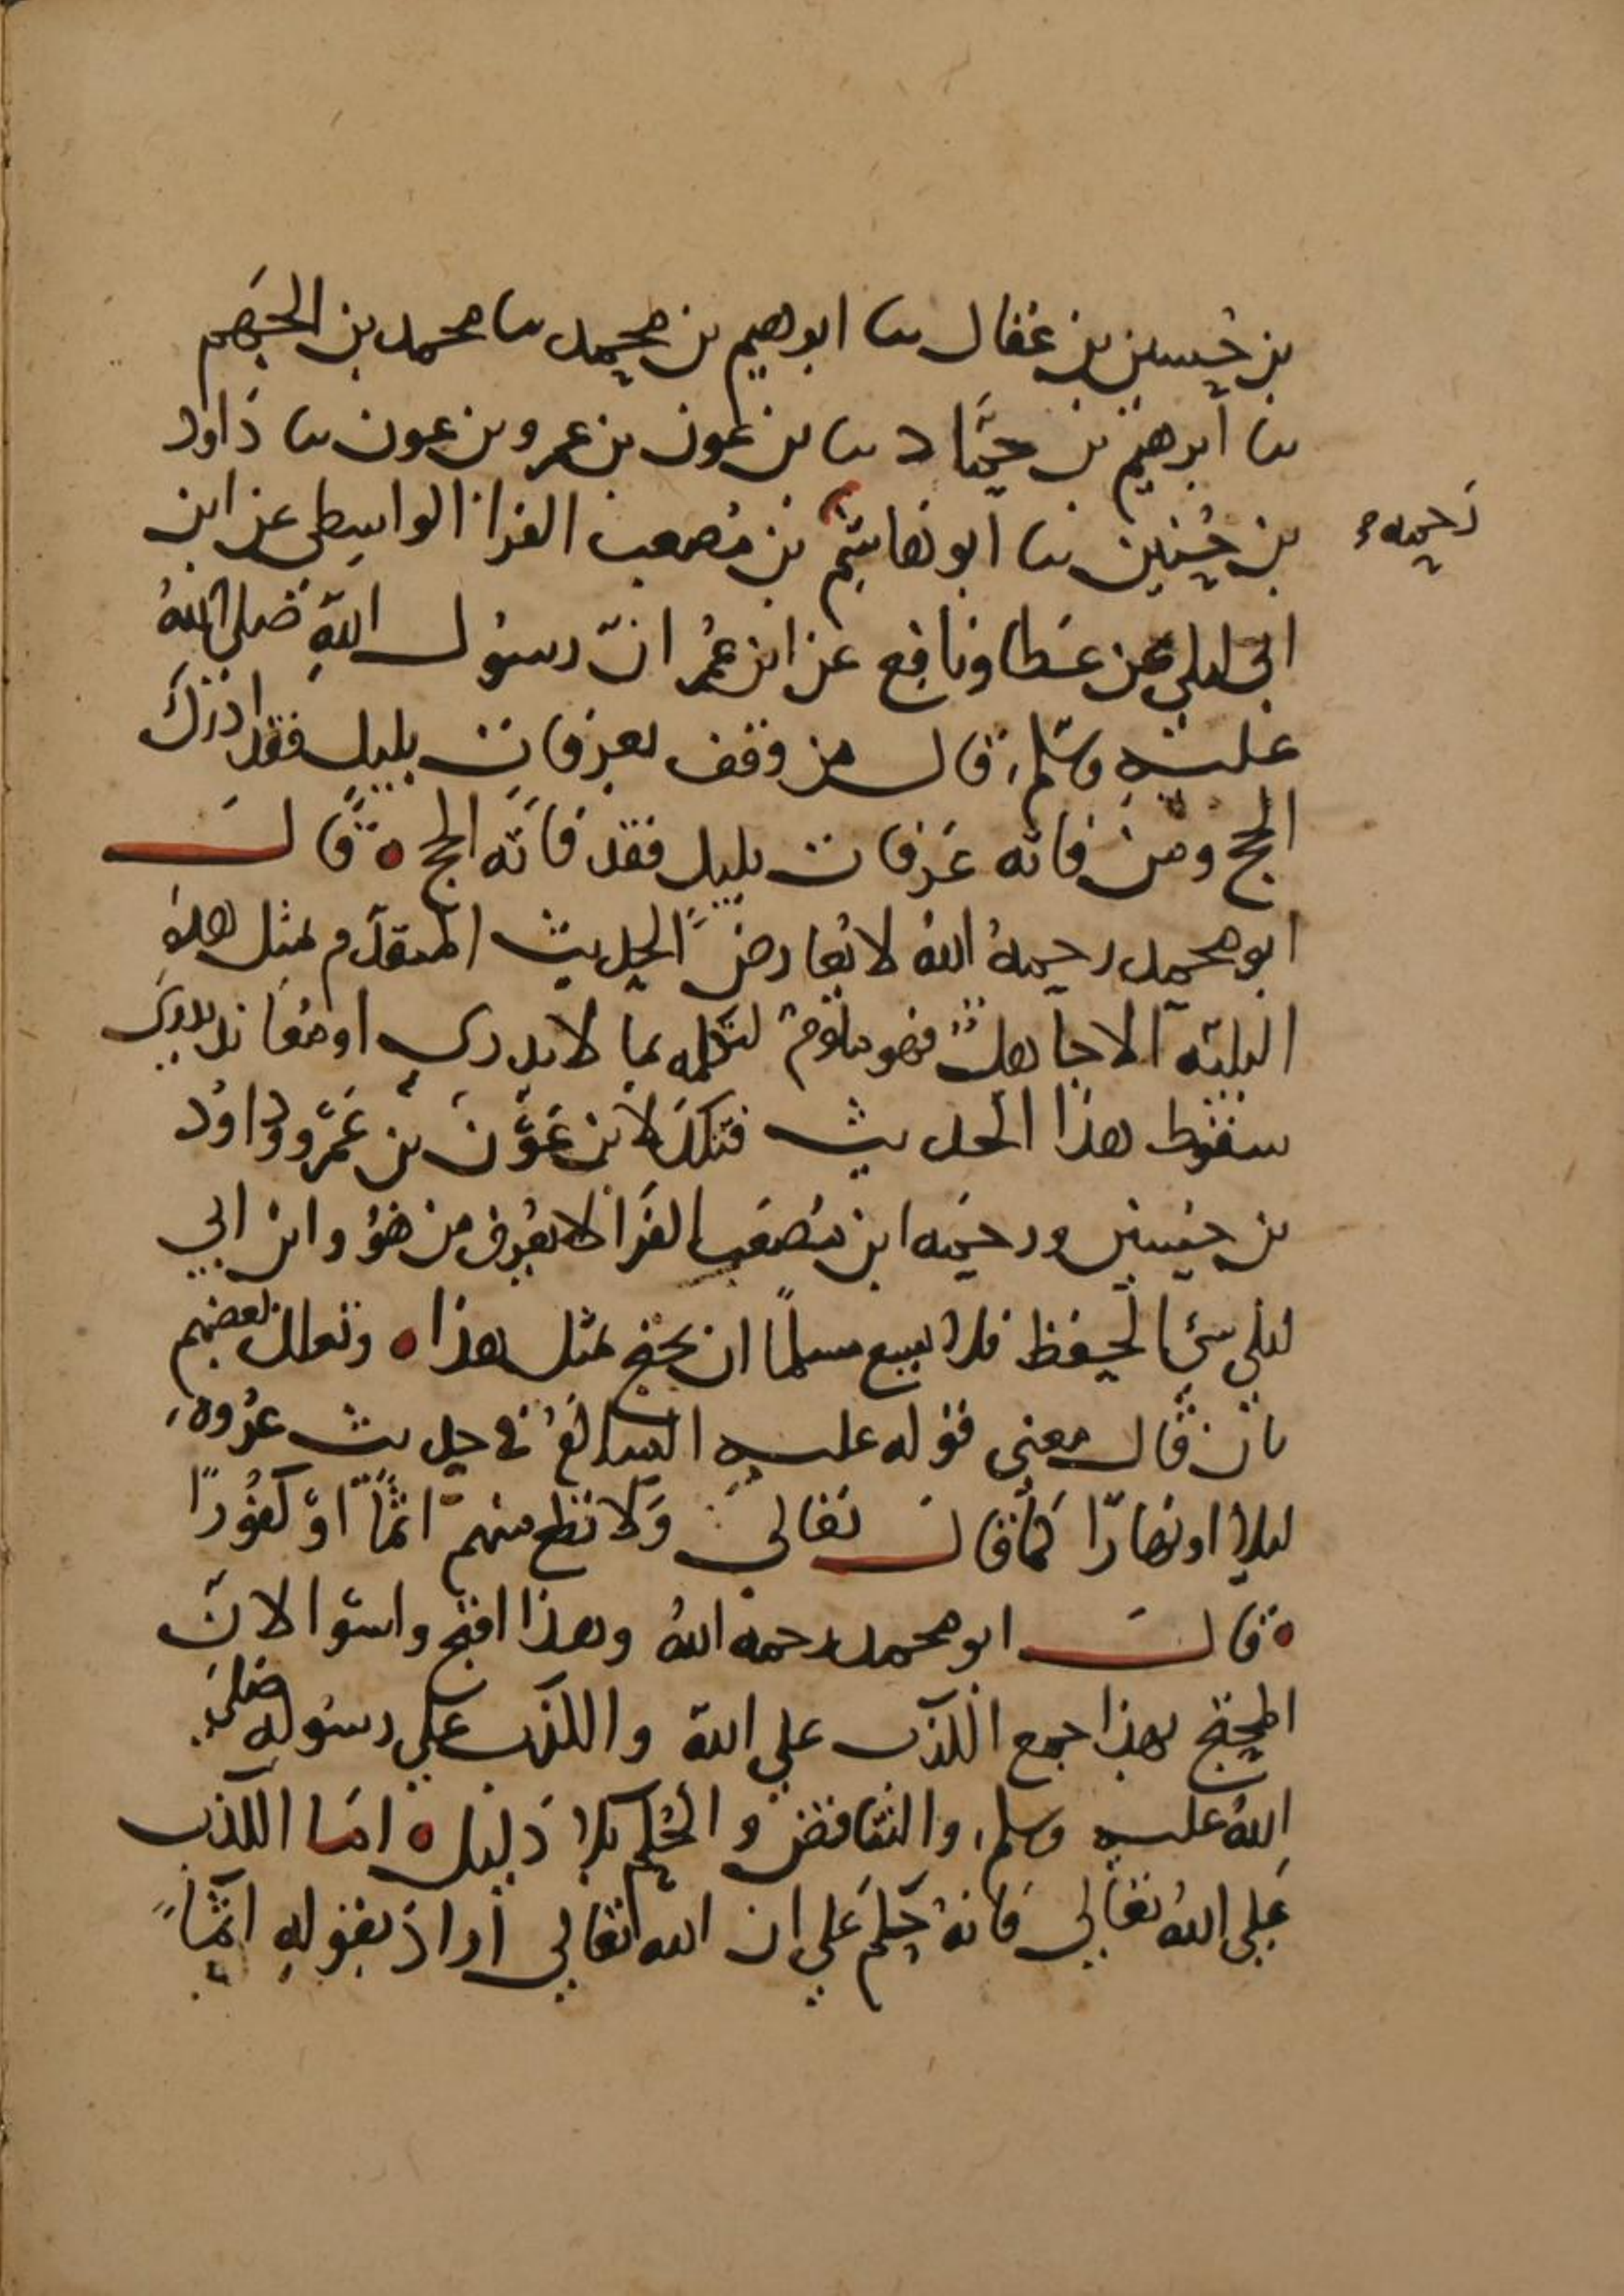 بن حسين بن عفال نا ابرهيم بن محمد نا محمد بن الجهم
نا ابرهيم بن حماد نا بن عون بن عمرو بن عون نا داود
بن حنين نا ابو هاشم بن مصعب الفرا الواسطى عن ابن
رحمه
ابى ليلى عن عطا ونافع عن ابن عمر ان رسول الله صلى الله
عليه وسلم قال من وقف بعرفات بليل فقد ادرك
الحج ومن فاته عرفات بليل فقد فاته الحج ه قال
ابو محمد رحمه الله لا يعارض الحديث المتقدم بمثل هذه
البليه الا جاهل فهو ملوم لتكلمه بما لا يدرى او معاند يدرى
سقوط هذا الحديث فتكذ لابن عون بن عمرو وداود
بن حنين ورحمه ابن مصعب الفرا لا يعرف من هو وابن ابي
ليلى سئ الحفظ فلا يسع مسلما ان يحتج بمثل هذا ه وتعلل بعضهم
بان قال معنى قوله عليه السلام فى حديث عروه
ليلا او نهارا كما قال تعالى ولا تطع منهم اثما او كفورا
ه قال ابو محمد رحمه الله وهذا اقبح واسوا لان
المحتج بهذا جمع الكذب على الله والكذب على رسوله صلى
الله عليه وسلم والتناقض والحكم بلا دليل ه اما الكذب
على الله تعالى فانه حكم على ان الله تعالى اراد بقوله اثما